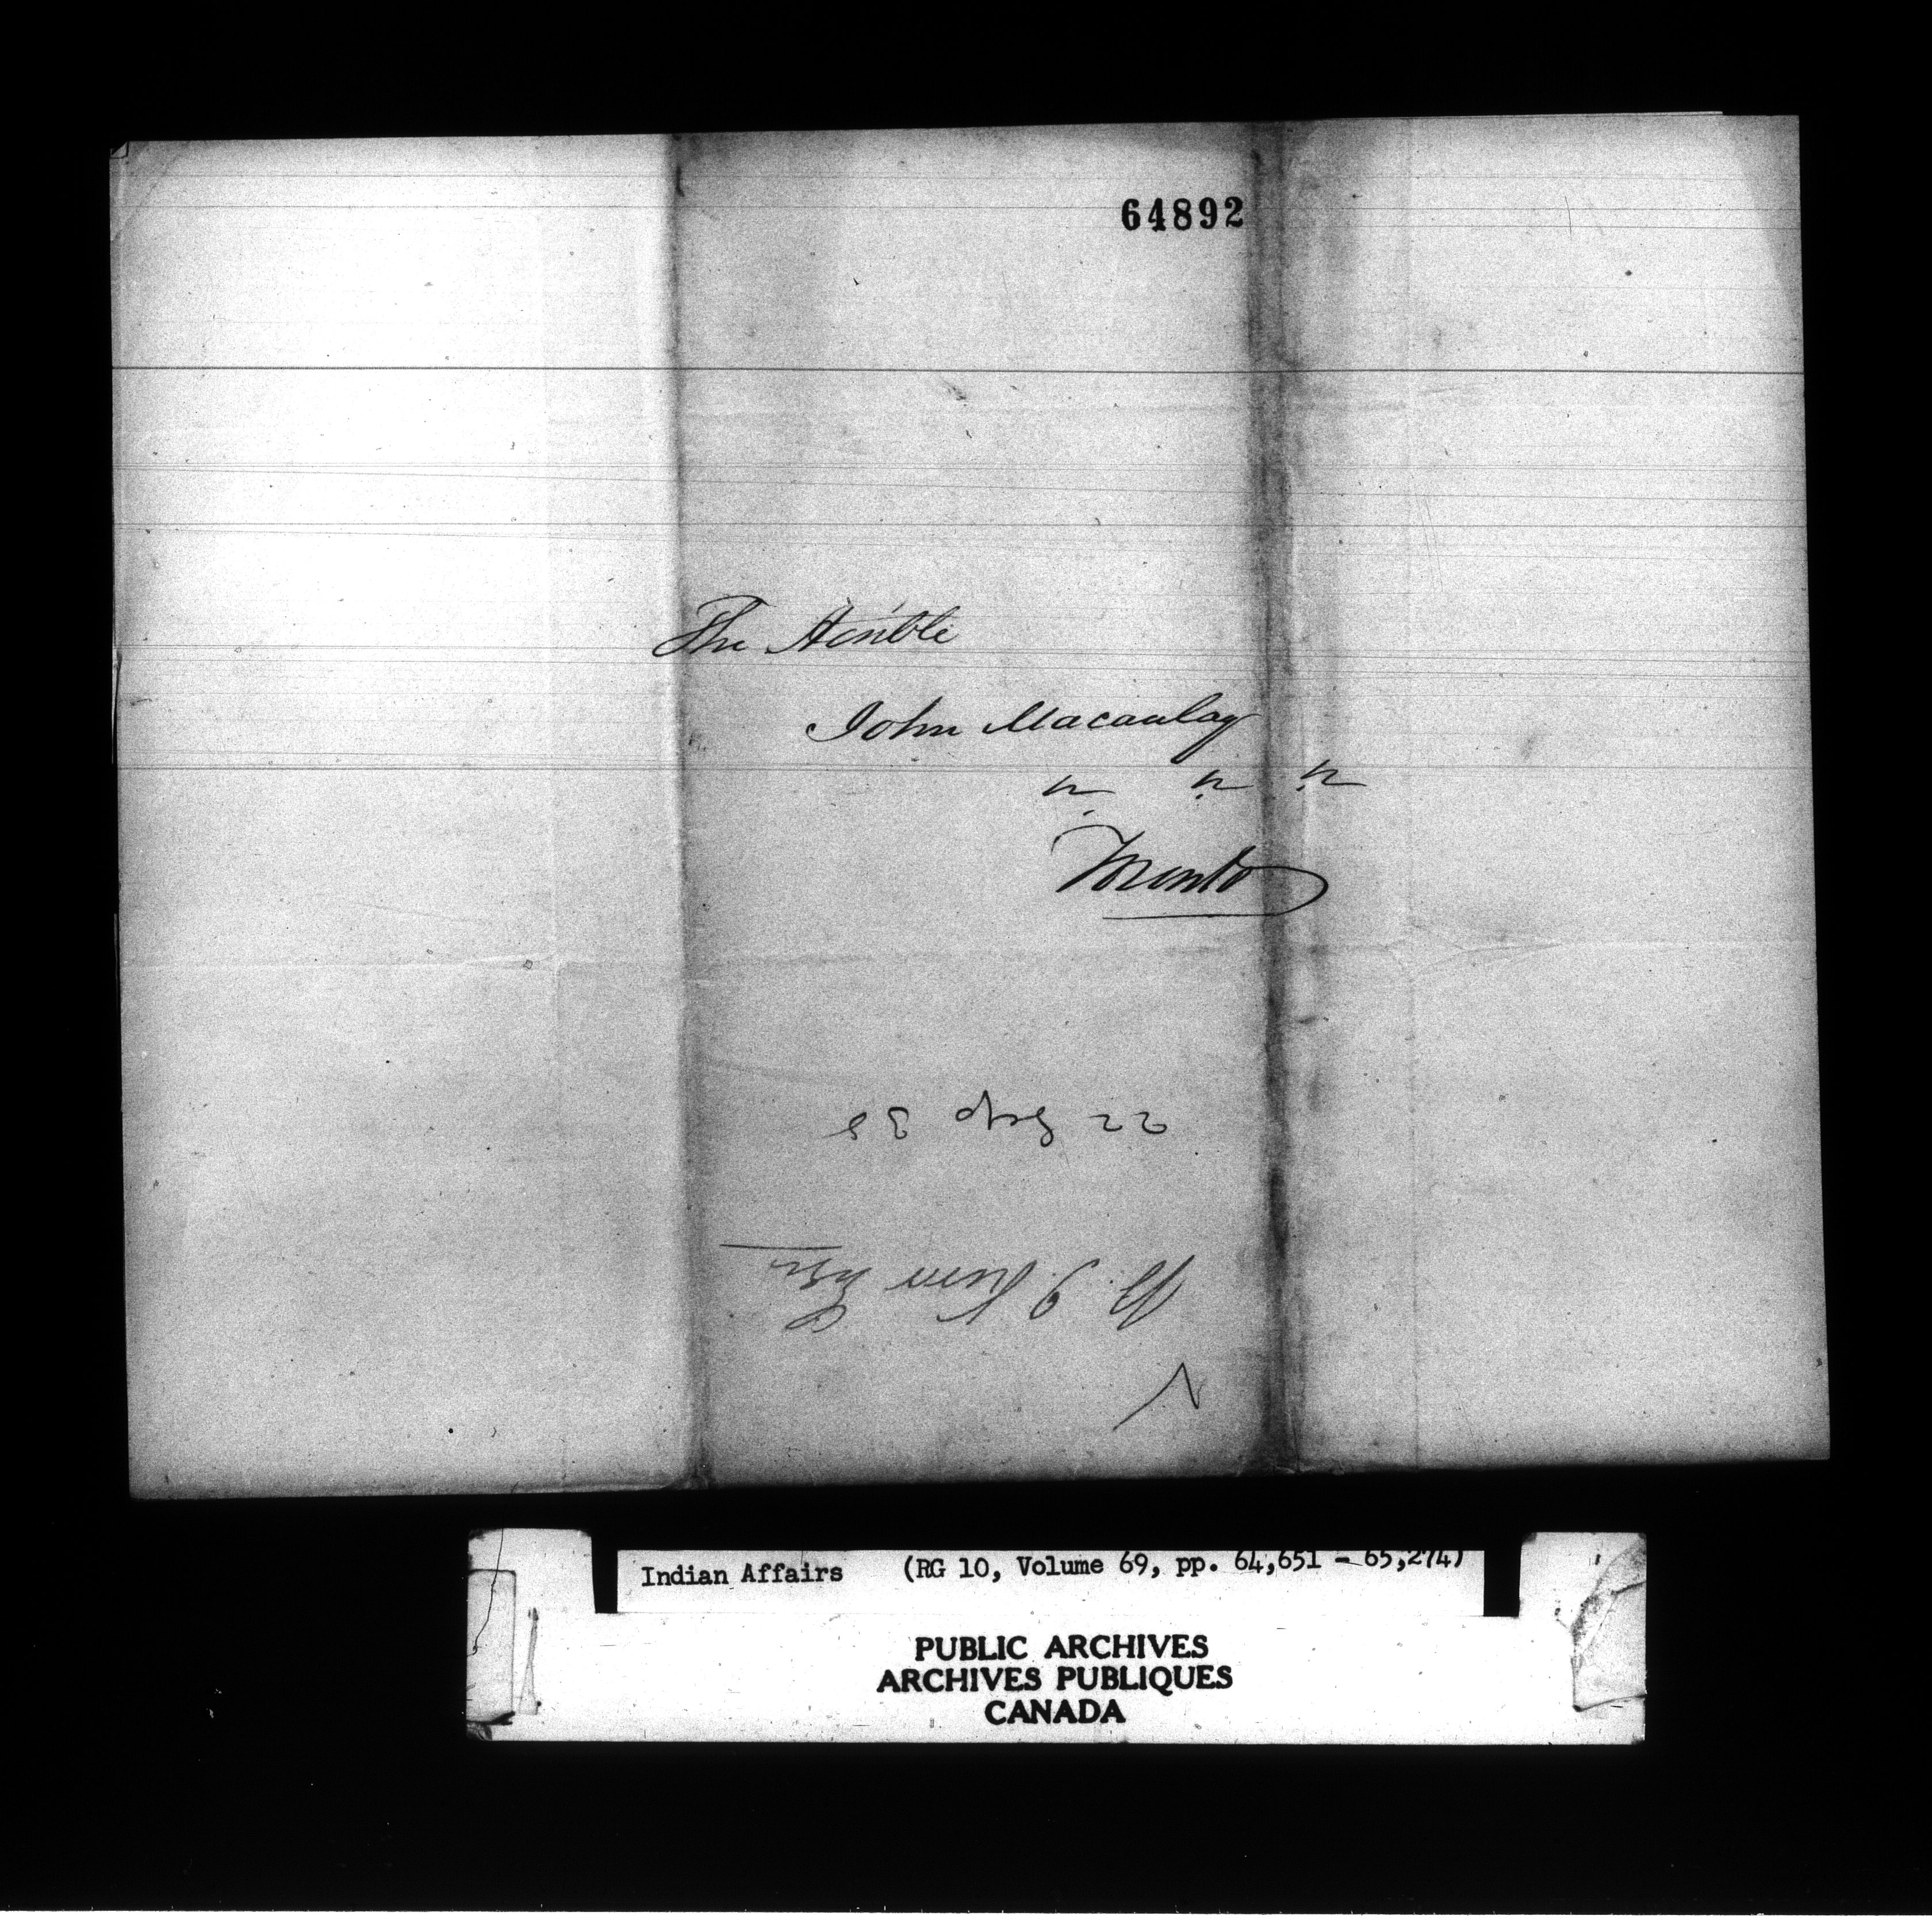 64892
The Honble
John Macaulay
" " "
Toronto
22 Sep 38
W. J. Kerr Esqr
Indian Affairs (RG 10, Volume 69, pp. 64,651 - 65,274)
PUBLIC ARCHIVES
ARCHIVES PUBLIQUES
CANADA